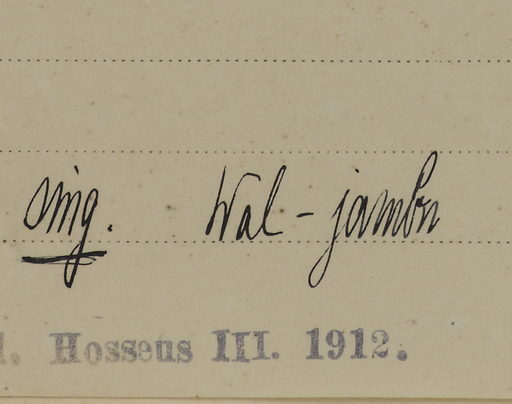 sing. Wal-jambu
Hosseus III. 1912.